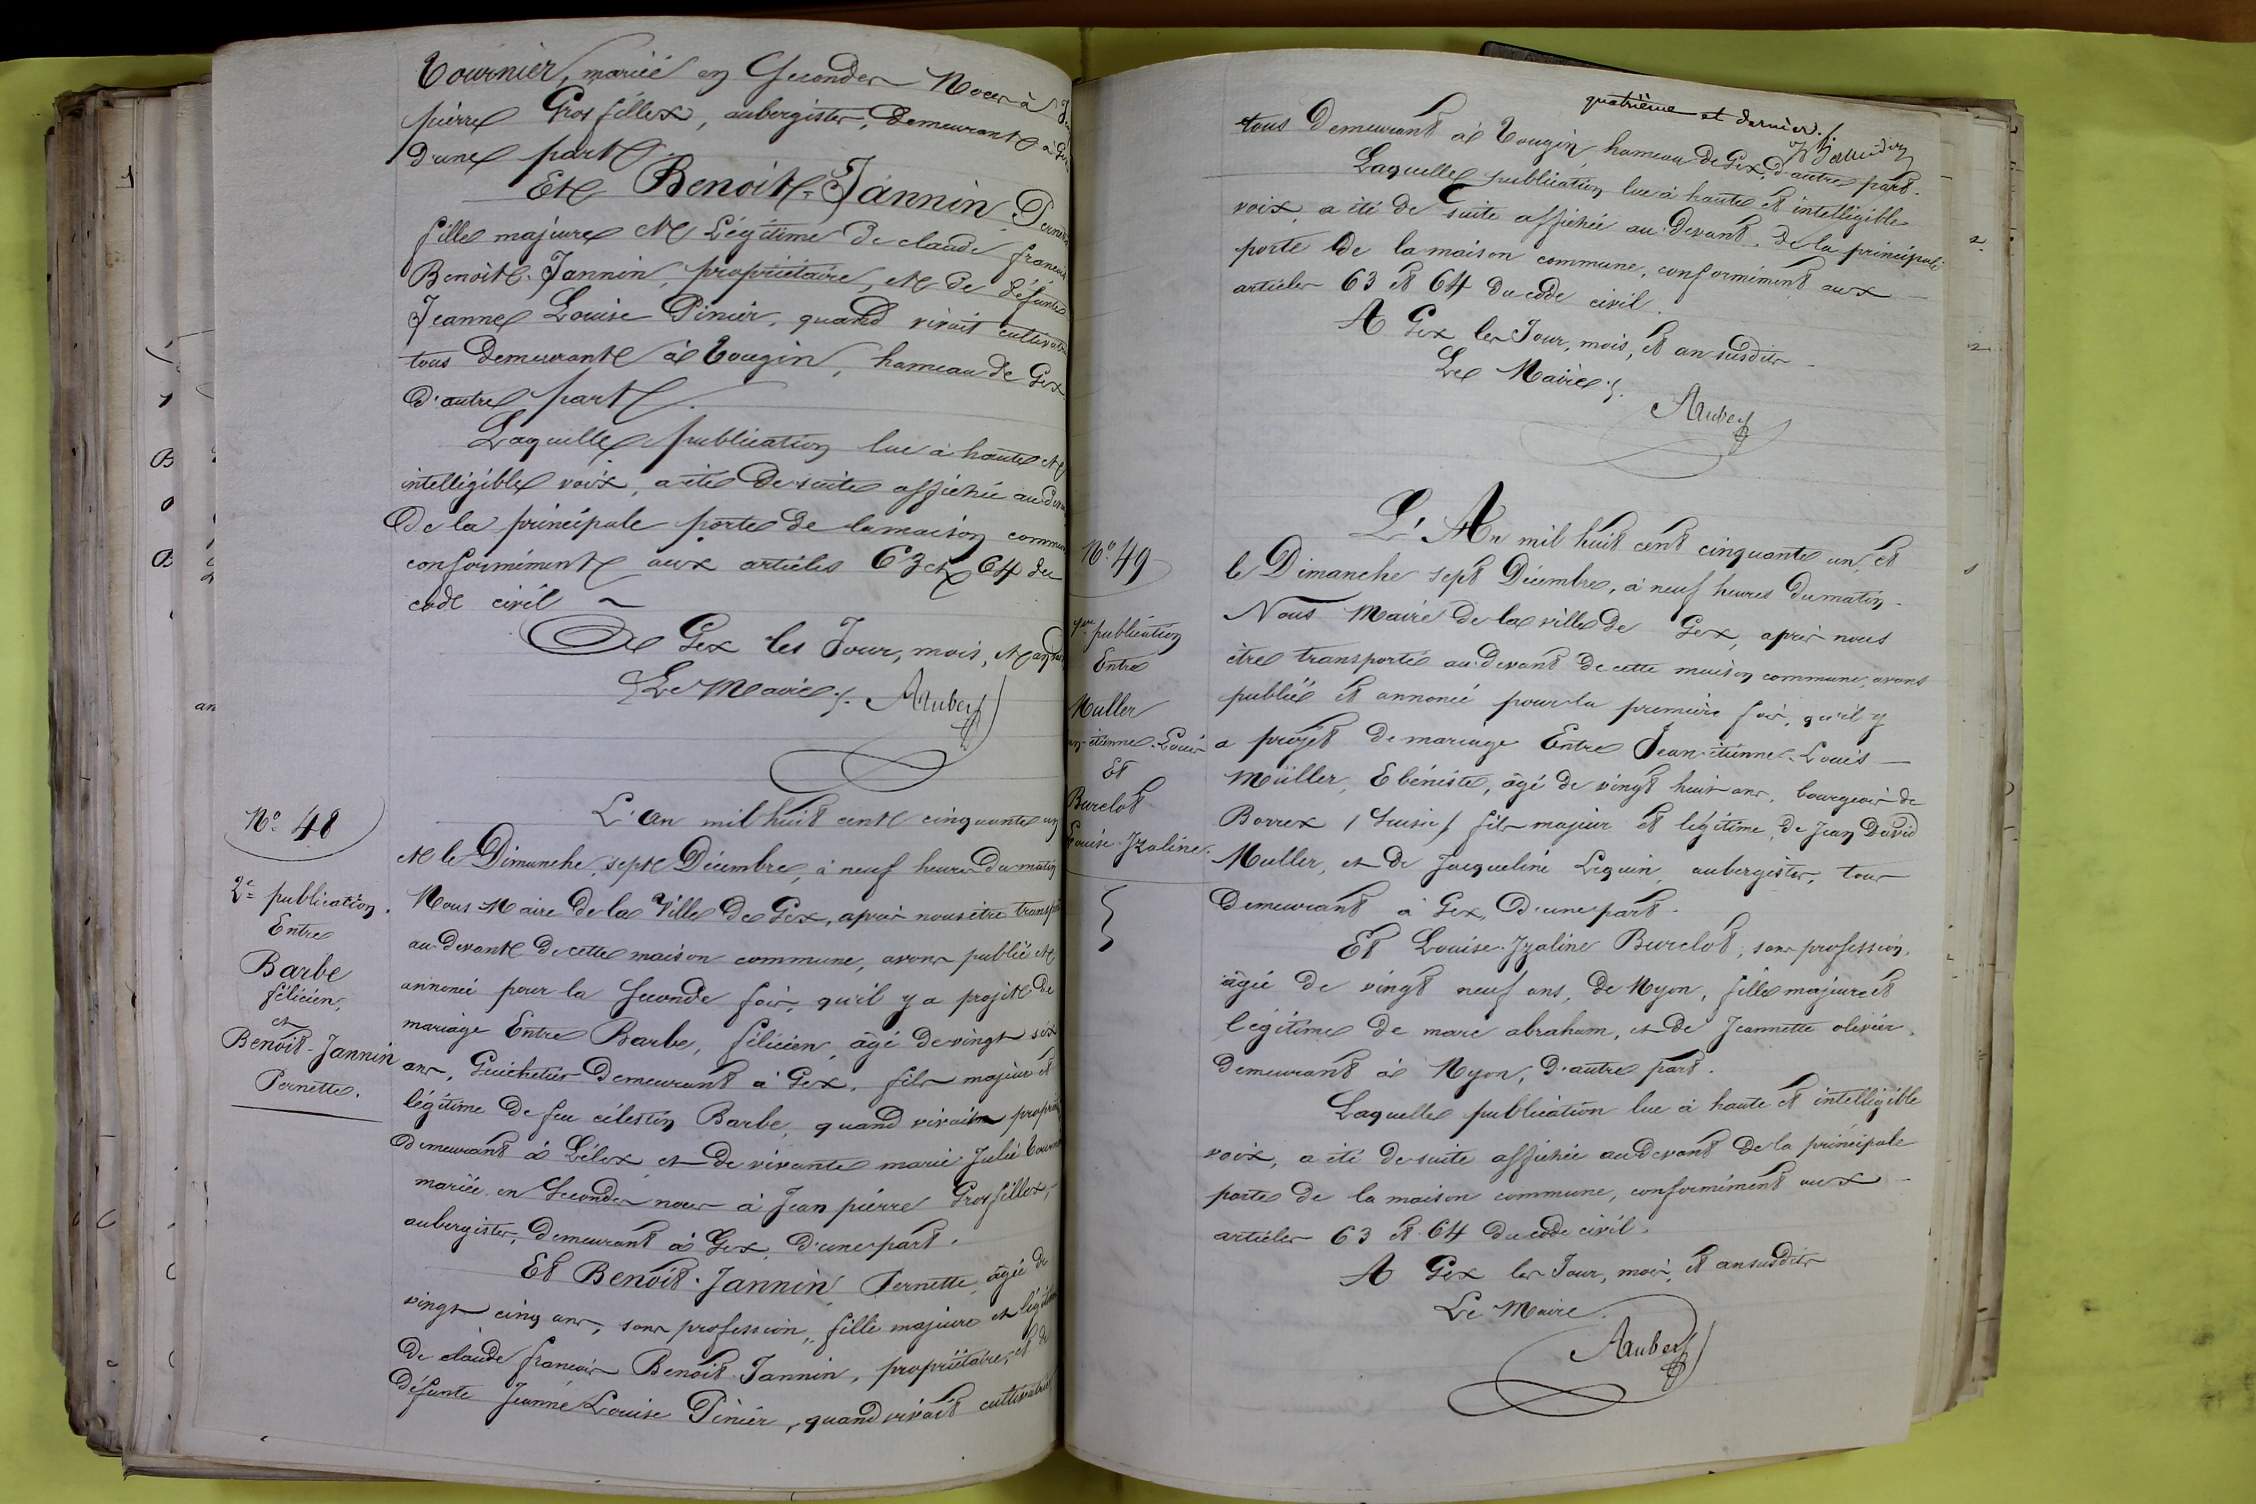 Tournier, mariée en Secondes Noces à
pierre Grosfillex, aubergiste, demeurant à
d'une part.
Et Benoit-Jannin
fille majeure et Légitime de claude françois
Benoit-Jannin, propriétaire, et de défunte
Jeanne Louise Pinier, quand vivait
tous demeurant à Tougin, hameau de Gex
d'autre part.
Laquelle publication lue à haute et
intelligible voix, a été de suite affichée au
de la principale porte de la maison
conformément aux articles 63 et 64 du
code civil
A Gex les Jour, mois, et an
Le Maire
N° 48
2e publication
Entre
Barbe
félicien,
et
Benoit-Jannin
Pernette.
L'an mil huit cent cinquante un
et le Dimanche, sept Décembre, à neuf heures du matin
Nous Maire de la Ville de Gex, après nous être
au devant de cette maison commune, avons publié et
annoncé pour la Seconde fois, qu'il y a projet de
mariage Entre Barbe, félicien, âgé de vingt six
ans, Guichetier demeurant à Gex, fils majeur et
légitime de feu célestin Barbe, quand vivait
demeurant à Lélex et de vivante marie Julie
mariée en Secondes noces à Jean pierre Grosfillex,
aubergiste, demeurant à Gex, d'une part.
Et Benoit-Jannin Pernette, âgée de
vingt cinq ans, sans profession, fille majeure et
de claude françois Benoit-Jannin, propriétaire, et de
défunte Jeanne Louise Pinier, quand vivait
quatrième et dernier.
tous demeurant à Tougin, hameau de Gex, d'autre part.
Laquelle publication lue à haute et intelligible
voix, a été de suite affichée au devant de la principale
porte de la maison commune, conformément aux
articles 63 et 64 du code civil.
A Gex les Jour, mois, et an susdits
Le Maire
N° 49
1ere publication
Entre
Muller
Louis
Et
Burelot
Louise-Izaline
L'An mil huit cent cinquante un, et
le Dimanche sept Décembre, à neuf heures du matin
Nous Maire de la ville de Gex, après nous
être transporté au devant de cette maison commune, avons
publié et annoncé pour la première fois, qu'il y
a projet de mariage Entre Jean-étienne-Louis
Müller, Ebéniste, âgé de vingt huit ans, bourgeois de
Borrex, (Suisse) fils majeur et légitime, de Jean David
Muller, et de Jacqueline Léguin, aubergistes, tous
demeurant à Gex, d'une part.
Et Louise-Izaline Burelot, sans profession,
âgée de vingt neuf ans, de Nyon, fille majeure et
légitime de marc abraham, et de Jeannette olivier,
demeurant à Nyon, d'autre part.
Laquelle publication lue à haute et intelligible
voix, a été de suite affichée au devant de la principale
porte de la maison commune, conformément aux
articles 63 et 64 du code civil.
A Gex les Jour, mois, et an susdits
Le Maire